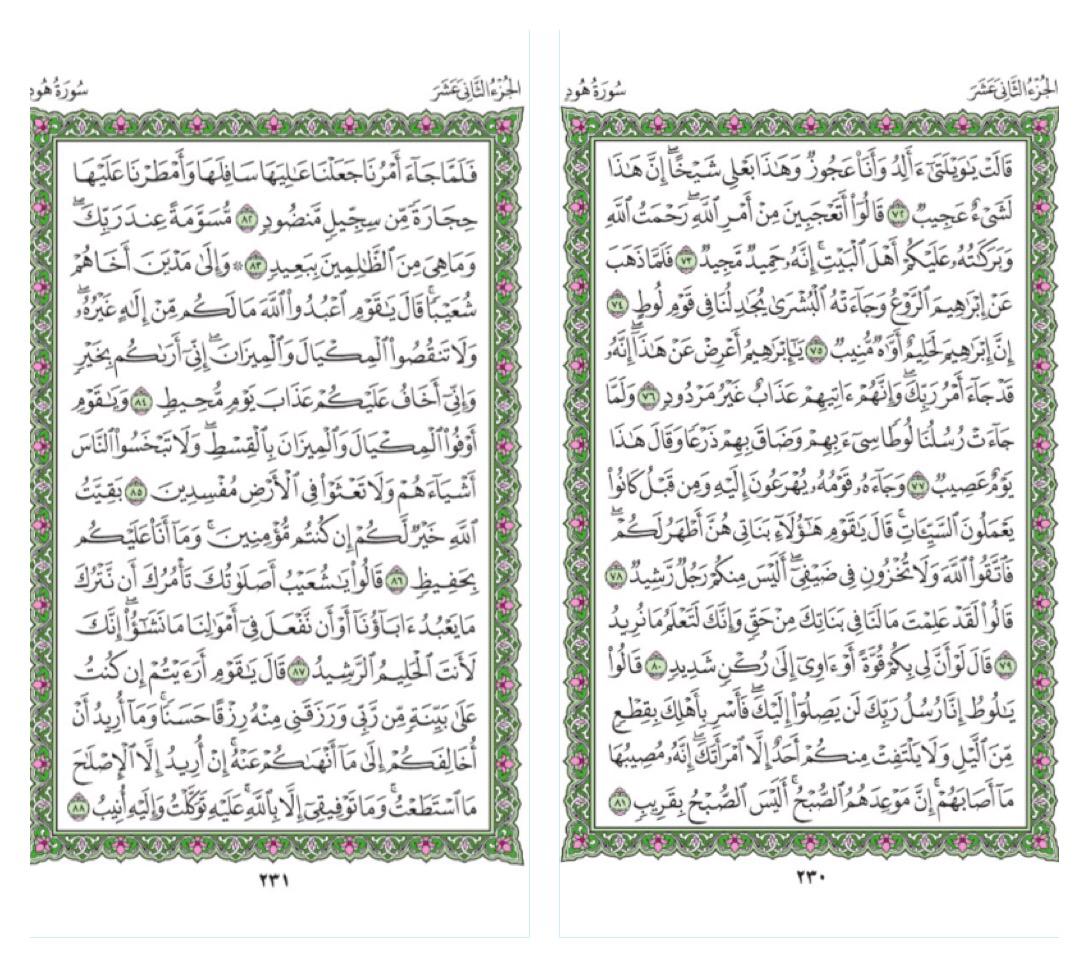 الجزء الثاني عشر
سورة هود
قَالَتْ يَٰوَيْلَتَىٰٓ ءَأَلِدُ وَأَنَا۠ عَجُوزٌ وَهَٰذَا بَعْلِى شَيْخًا ۖ إِنَّ هَٰذَا
لَشَىْءٌ عَجِيبٌ ٧٢ قَالُوٓا۟ أَتَعْجَبِينَ مِنْ أَمْرِ ٱللَّهِ ۖ رَحْمَتُ ٱللَّهِ
وَبَرَكَٰتُهُۥ عَلَيْكُمْ أَهْلَ ٱلْبَيْتِ ۚ إِنَّهُۥ حَمِيدٌ مَّجِيدٌ ٧٣ فَلَمَّا ذَهَبَ
عَنْ إِبْرَٰهِيمَ ٱلرَّوْعُ وَجَآءَتْهُ ٱلْبُشْرَىٰ يُجَٰدِلُنَا فِى قَوْمِ لُوطٍ ٧٤
إِنَّ إِبْرَٰهِيمَ لَحَلِيمٌ أَوَّٰهٌ مُّنِيبٌ ٧٥ يَٰٓإِبْرَٰهِيمُ أَعْرِضْ عَنْ هَٰذَآ ۖ إِنَّهُۥ
قَدْ جَآءَ أَمْرُ رَبِّكَ ۖ وَإِنَّهُمْ ءَاتِيهِمْ عَذَابٌ غَيْرُ مَرْدُودٍ ٧٦ وَلَمَّا
جَآءَتْ رُسُلُنَا لُوطًا سِىٓءَ بِهِمْ وَضَاقَ بِهِمْ ذَرْعًا وَقَالَ هَٰذَا
يَوْمٌ عَصِيبٌ ٧٧ وَجَآءَهُۥ قَوْمُهُۥ يُهْرَعُونَ إِلَيْهِ وَمِن قَبْلُ كَانُوا۟
يَعْمَلُونَ ٱلسَّيِّـَٔاتِ ۚ قَالَ يَٰقَوْمِ هَٰٓؤُلَآءِ بَنَاتِى هُنَّ أَطْهَرُ لَكُمْ ۖ
فَٱتَّقُوا۟ ٱللَّهَ وَلَا تُخْزُونِ فِى ضَيْفِىٓ ۖ أَلَيْسَ مِنكُمْ رَجُلٌ رَّشِيدٌ ٧٨
قَالُوا۟ لَقَدْ عَلِمْتَ مَا لَنَا فِى بَنَاتِكَ مِنْ حَقٍّ وَإِنَّكَ لَتَعْلَمُ مَا نُرِيدُ
٧٩ قَالَ لَوْ أَنَّ لِى بِكُمْ قُوَّةً أَوْ ءَاوِىٓ إِلَىٰ رُكْنٍ شَدِيدٍ ٨٠ قَالُوا۟
يَٰلُوطُ إِنَّا رُسُلُ رَبِّكَ لَن يَصِلُوٓا۟ إِلَيْكَ ۖ فَأَسْرِ بِأَهْلِكَ بِقِطْعٍ
مِّنَ ٱلَّيْلِ وَلَا يَلْتَفِتْ مِنكُمْ أَحَدٌ إِلَّا ٱمْرَأَتَكَ ۖ إِنَّهُۥ مُصِيبُهَا
مَآ أَصَابَهُمْ ۚ إِنَّ مَوْعِدَهُمُ ٱلصُّبْحُ ۚ أَلَيْسَ ٱلصُّبْحُ بِقَرِيبٍ ٨١
٢٣٠
الجزء الثاني عشر
سورة هود
فَلَمَّا جَآءَ أَمْرُنَا جَعَلْنَا عَٰلِيَهَا سَافِلَهَا وَأَمْطَرْنَا عَلَيْهَا
حِجَارَةً مِّن سِجِّيلٍ مَّنضُودٍ ٨٢ مُّسَوَّمَةً عِندَ رَبِّكَ ۖ
وَمَا هِىَ مِنَ ٱلظَّٰلِمِينَ بِبَعِيدٍ ٨٣ ۞ وَإِلَىٰ مَدْيَنَ أَخَاهُمْ
شُعَيْبًا ۚ قَالَ يَٰقَوْمِ ٱعْبُدُوا۟ ٱللَّهَ مَا لَكُم مِّنْ إِلَٰهٍ غَيْرُهُۥ ۖ
وَلَا تَنقُصُوا۟ ٱلْمِكْيَالَ وَٱلْمِيزَانَ ۖ إِنِّىٓ أَرَىٰكُم بِخَيْرٍ
وَإِنِّىٓ أَخَافُ عَلَيْكُمْ عَذَابَ يَوْمٍ مُّحِيطٍ ٨٤ وَيَٰقَوْمِ
أَوْفُوا۟ ٱلْمِكْيَالَ وَٱلْمِيزَانَ بِٱلْقِسْطِ ۖ وَلَا تَبْخَسُوا۟ ٱلنَّاسَ
أَشْيَآءَهُمْ وَلَا تَعْثَوْا۟ فِى ٱلْأَرْضِ مُفْسِدِينَ ٨٥ بَقِيَّتُ
ٱللَّهِ خَيْرٌ لَّكُمْ إِن كُنتُم مُّؤْمِنِينَ ۚ وَمَآ أَنَا۠ عَلَيْكُم
بِحَفِيظٍ ٨٦ قَالُوا۟ يَٰشُعَيْبُ أَصَلَوٰتُكَ تَأْمُرُكَ أَن نَّتْرُكَ
مَا يَعْبُدُ ءَابَآؤُنَآ أَوْ أَن نَّفْعَلَ فِىٓ أَمْوَٰلِنَا مَا نَشَٰٓؤُا۟ ۖ إِنَّكَ
لَأَنتَ ٱلْحَلِيمُ ٱلرَّشِيدُ ٨٧ قَالَ يَٰقَوْمِ أَرَءَيْتُمْ إِن كُنتُ
عَلَىٰ بَيِّنَةٍ مِّن رَّبِّى وَرَزَقَنِى مِنْهُ رِزْقًا حَسَنًا ۚ وَمَآ أُرِيدُ أَنْ
أُخَالِفَكُمْ إِلَىٰ مَآ أَنْهَىٰكُمْ عَنْهُ ۚ إِنْ أُرِيدُ إِلَّا ٱلْإِصْلَٰحَ
مَا ٱسْتَطَعْتُ ۚ وَمَا تَوْفِيقِىٓ إِلَّا بِٱللَّهِ ۚ عَلَيْهِ تَوَكَّلْتُ وَإِلَيْهِ أُنِيبُ ٨٨
٢٣١